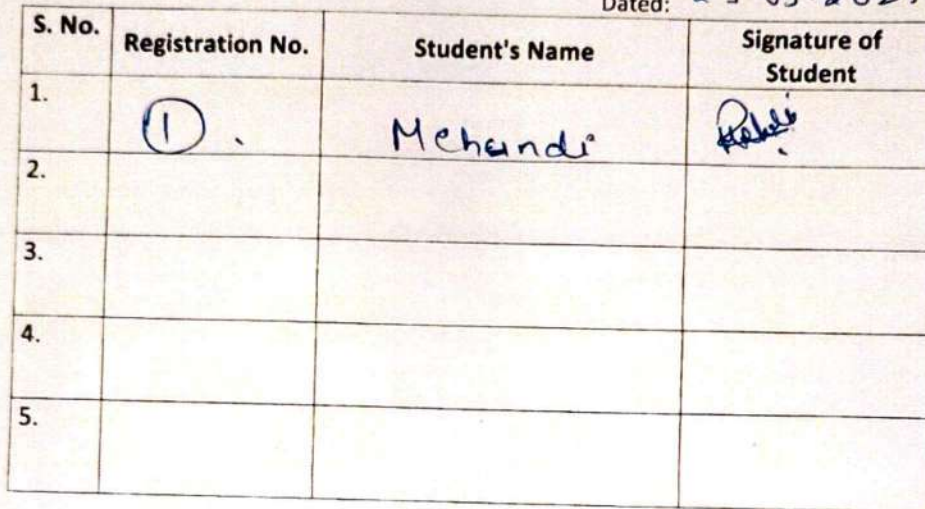 Dated:
S. No. Registration No. Student's Name Signature of Student
1. 1. Mehandi
2.
3.
4.
5.